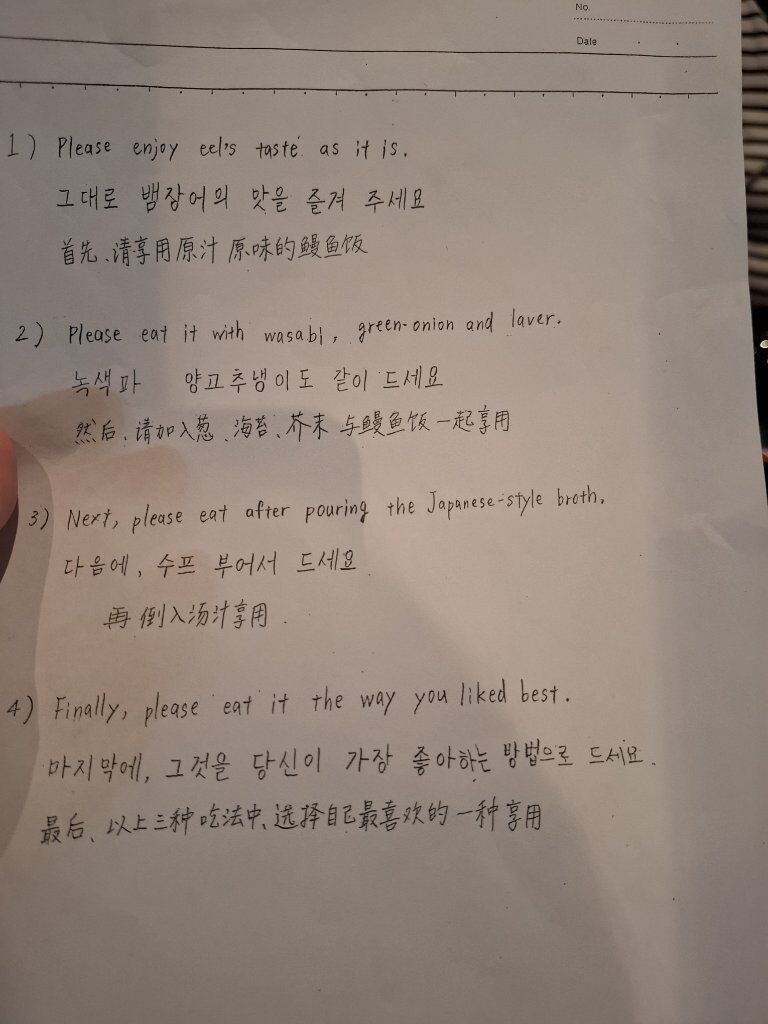 No.
Date
1) Please enjoy eel's taste as it is.
그대로 뱀장어의 맛을 즐겨 주세요
首先、请享用原汁原味的鳗鱼饭
2) Please eat it with wasabi, green-onion and laver.
녹색파 양고추냉이도 같이 드세요
然后、请加入葱、海苔、芥末与鳗鱼饭一起享用
3) Next, please eat after pouring the Japanese-style broth.
다음에, 수프 부어서 드세요
再倒入汤汁享用.
4) Finally, please eat it the way you liked best.
마지막에, 그것을 당신이 가장 좋아하는 방법으로 드세요.
最后、以上三种吃法中、选择自己最喜欢的一种享用